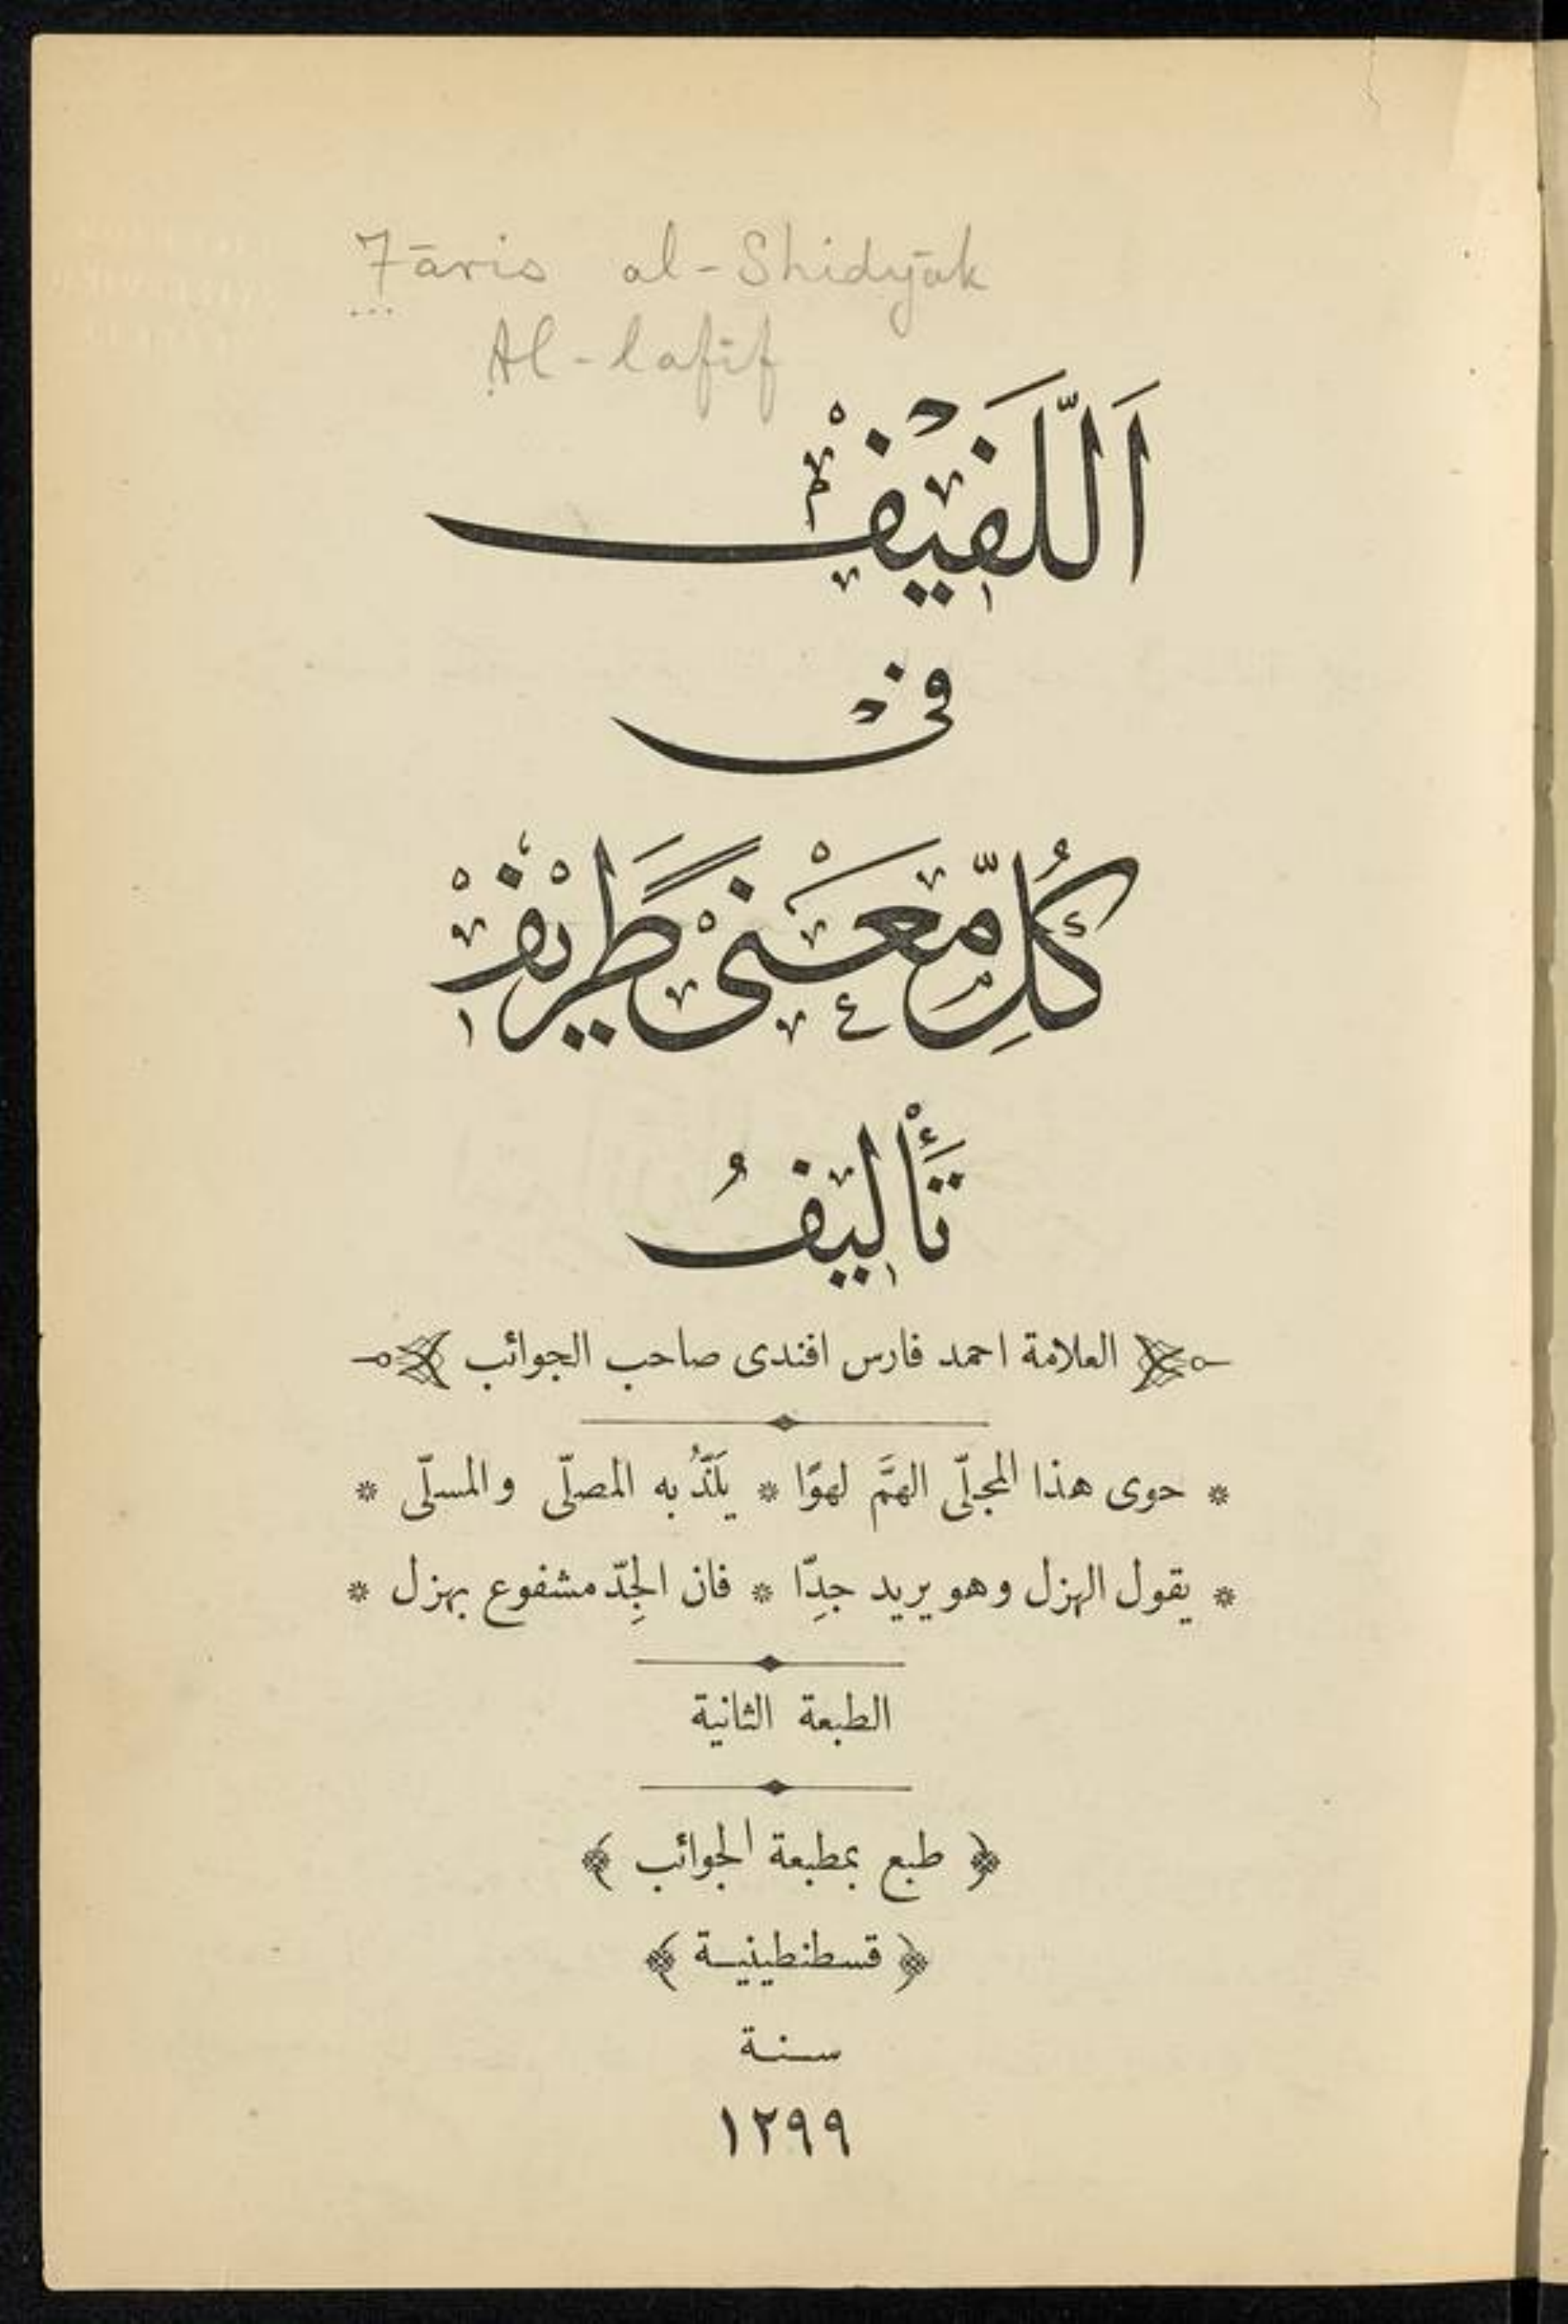 Fāris al-Shidyāk
Al-lafīf
اَللَّفِيْفْ
فىْ
كُلِّ مَّعْنًى طَرِيْفْ
تَأْلِيفُ
العلامة احمد فارس افندى صاحب الجوائب
* حوى هذا المجلّى الهمَّ لهوًا * يَلَذُّ به المصلّى والمسلّى *
* يقول الهزل وهو يريد جدِّا * فان الجِدّ مشفوع بهزل *
الطبعة الثانية
﴿ طبع بمطبعة الجوائب ﴾
﴿ قسطنطينية ﴾
سنة
١٢٩٩